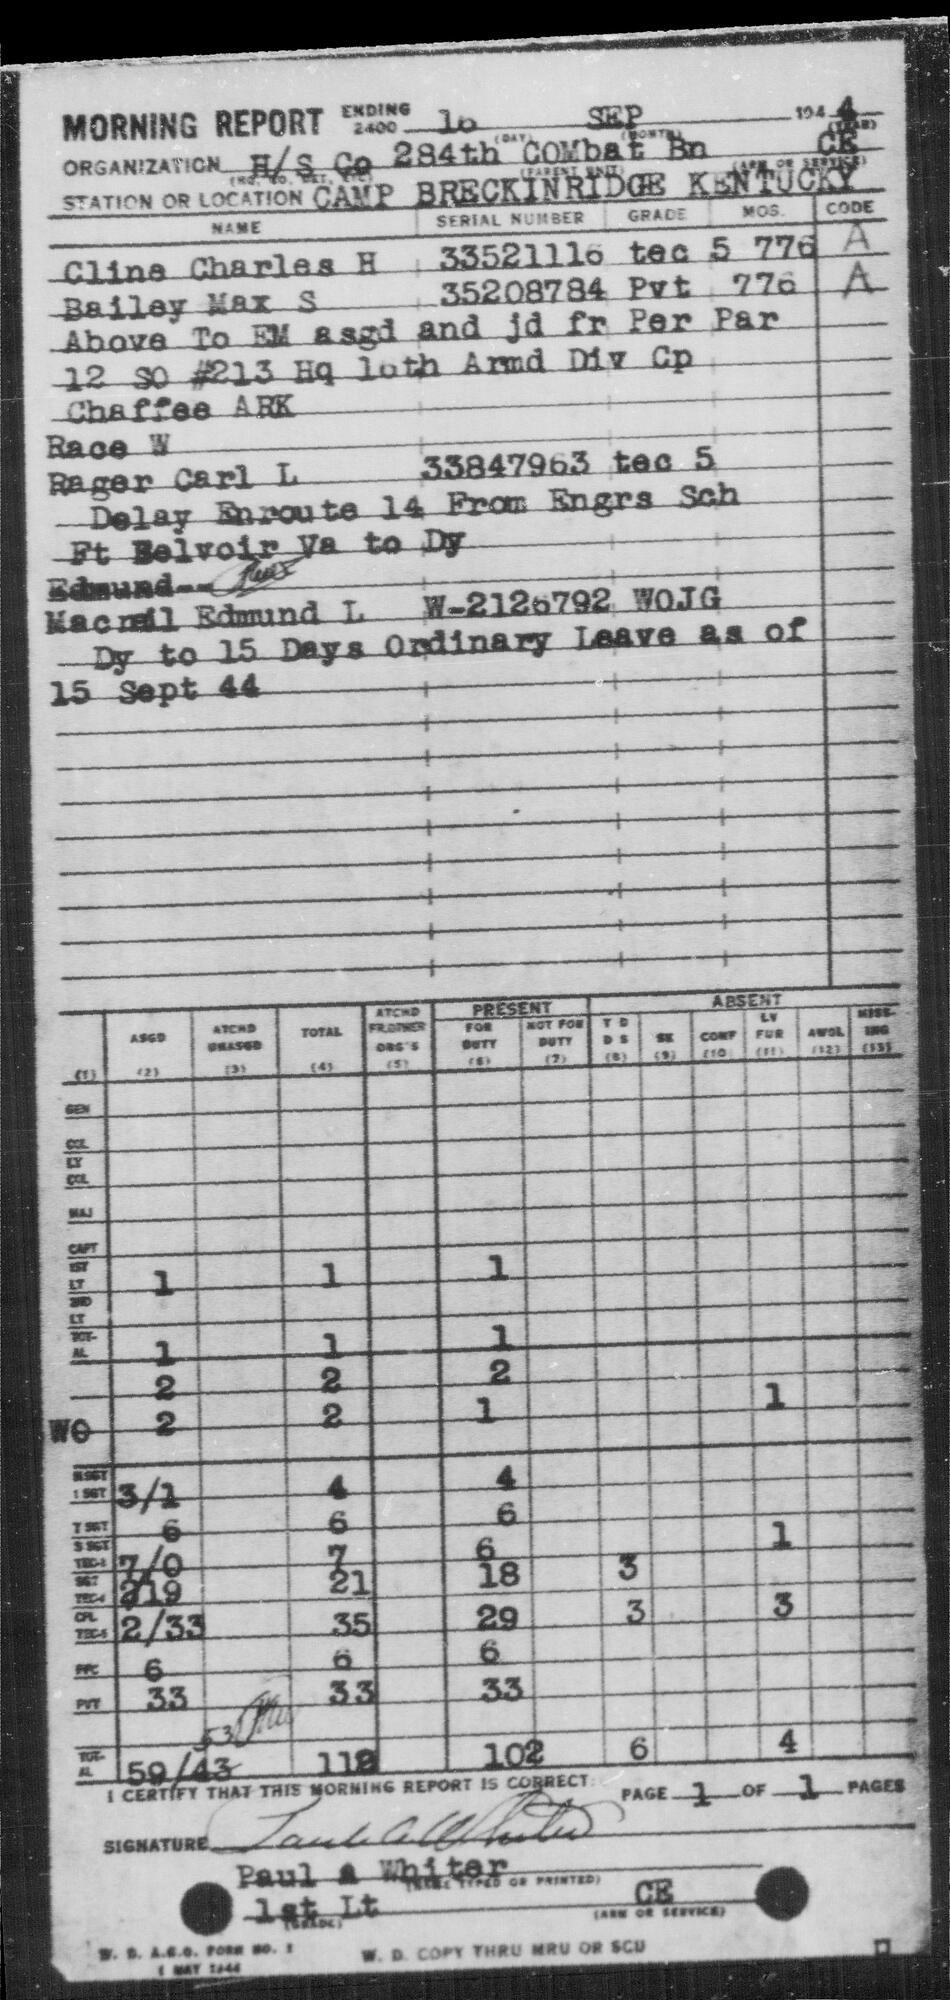 MORNING REPORT ENDING 2400 16 SEP 1944
(DAY) (MONTH) (YEAR)
ORGANIZATION H/S Co 284th COMbat Bn CE
(PARENT UNIT) (ARM OR SERVICE)
STATION OR LOCATION CAMP BRECKINRIDGE KENTUCKY
NAME SERIAL NUMBER GRADE MOS. CODE
Cline Charles H 33521116 tec 5 776 A
Bailey Max S 35208784 Pvt 776 A
Above To EM asgd and jd fr Per Par
12 SO #213 Hq 16th Armd Div Cp
Chaffee ARK
Race W
Rager Carl L 33847963 tec 5
Delay Enroute 14 From Engrs Sch
Ft Belvoir Va to Dy
Edmund--
Macneil Edmund L W-2126792 WOJG
Dy to 15 Days Ordinary Leave as of
15 Sept 44
PRESENT ABSENT
ASGD ATCHD UNASGD TOTAL ATCHD FR.OTHER ORG'S FOR DUTY NOT FOR DUTY T D D S SK CONF LV FUR AWOL MISS-ING
(1) (2) (3) (4) (5) (6) (7) (8) (9) (10) (11) (12) (13)
GEN
COL
LT COL
MAJ
CAPT
1ST LT 1 1 1
2ND LT
TOT-AL 1 1 1
2 2 2
WO 2 2 1 1
M SGT 1 SGT 3/1 4 4
T SGT 6 6 6
S SGT TEC-3 7/0 7 6 1
SGT TEC-4 2/19 21 18 3
CPL TEC-5 2/33 35 29 3 3
PFC 6 6 6
PVT 33 33 33
53
TOT-AL 59/43 112 102 6 4
I CERTIFY THAT THIS MORNING REPORT IS CORRECT: PAGE 1 OF 1 PAGES
SIGNATURE Paul A Whiter
Paul a Whiter
(NAME TYPED OR PRINTED)
1st Lt CE
(GRADE) (ARM OR SERVICE)
W. D. A.G.O. FORM NO. 1
1 MAY 1944
W. D. COPY THRU MRU OR SCU